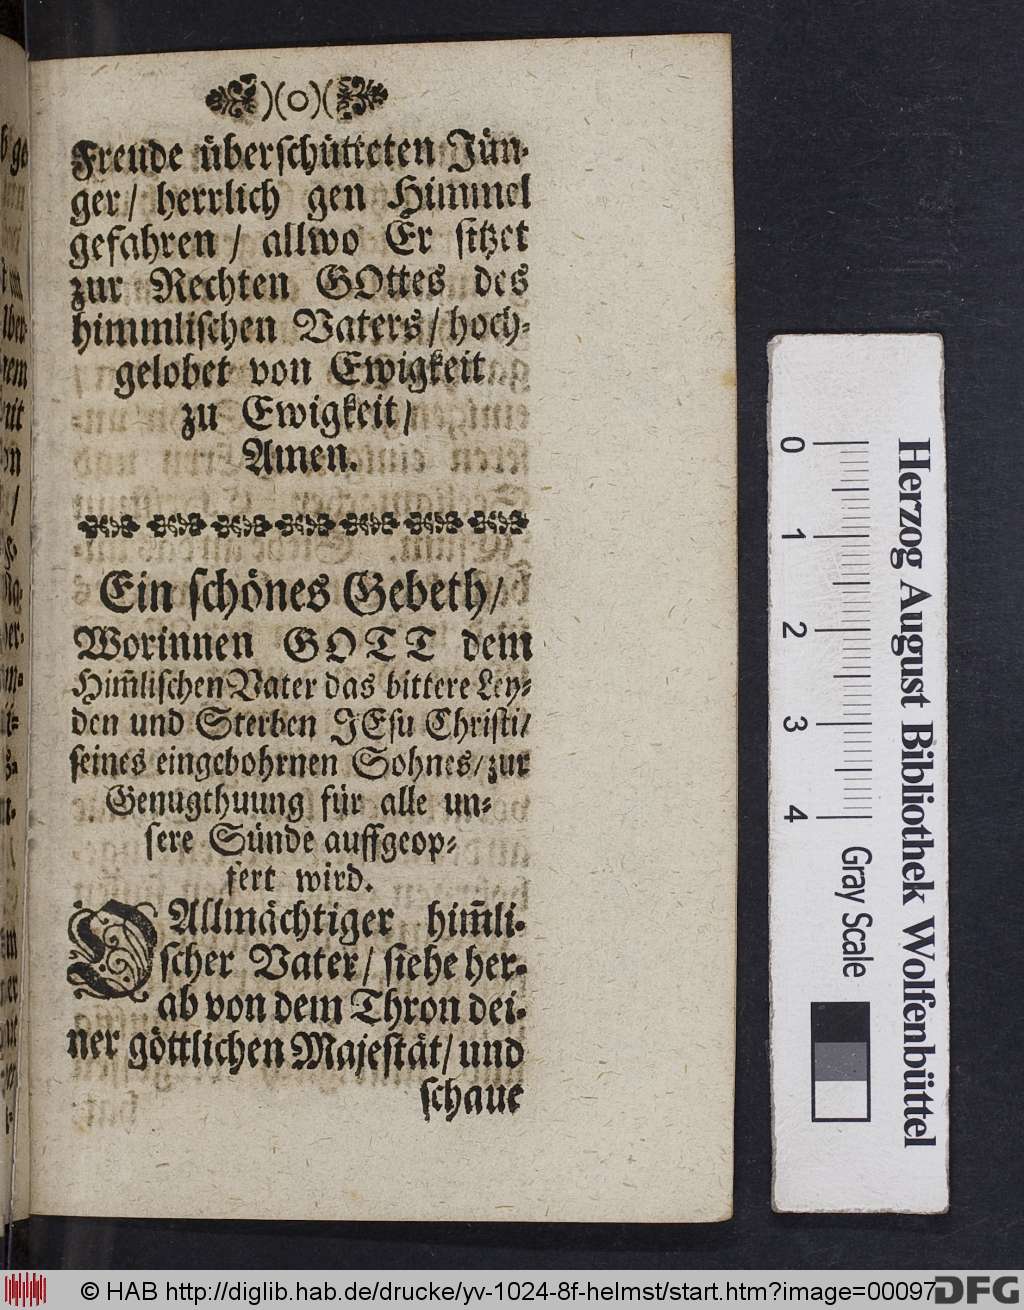 )(o)(
Freude überschütteten Jün-
ger/ herrlich gen Himmel
gefahren / allwo Er sitzet
zur Rechten GOttes des
himmlischen Vaters/ hoch-
gelobet von Ewigkeit
zu Ewigkeit/
Amen.
Ein schönes Gebeth/
Worinnen GOTT dem
Him̃lischen Vater das bittere Ley-
den und Sterben JEsu Christi/
seines eingebohrnen Sohnes/ zur
Genugthuung für alle un-
sere Sünde auffgeop-
fert wird.
O Allmächtiger him̃li-
scher Vater/ siehe her-
ab von dem Thron dei-
ner göttlichen Majestät/ und
schaue
0 1 2 3 4
Gray Scale
Herzog August Bibliothek Wolfenbüttel
© HAB http://diglib.hab.de/drucke/yv-1024-8f-helmst/start.htm?image=00097
DFG